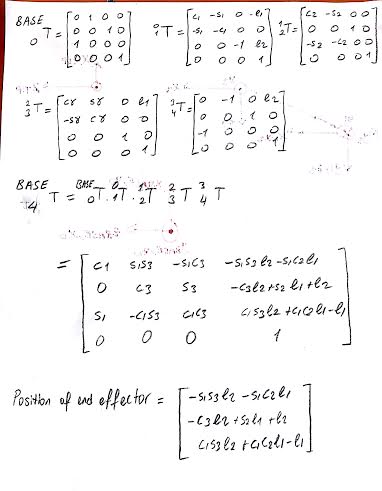 BASE 0 T = [0 1 0 0; 0 0 1 0; 1 0 0 0; 0 0 0 1] 0 1 T = [c1 -s1 0 -l1; -s1 -c1 0 0; 0 0 -1 l2; 0 0 0 1] 1 2 T = [c2 -s2 0 0; 0 0 1 0; -s2 -c2 0 0; 0 0 0 1]
2 3 T = [cr sr 0 l1; -sr cr 0 0; 0 0 1 0; 0 0 0 1] 3 4 T = [0 -1 0 l2; 0 0 1 0; -1 0 0 0; 0 0 0 1]
BASE 4 T = BASE 0 T . 0 1 T . 1 2 T 2 3 T 3 4 T
= [c1 s1s3 -s1c3 -s1s3l2-s1c2l1; 0 c3 s3 -c3l2+s2l1+l2; s1 -c1s3 c1c3 c1s3l2+c1c2l1-l1; 0 0 0 1]
Position of end effector = [-s1s3l2-s1c2l1; -c3l2+s2l1+l2; c1s3l2+c1c2l1-l1]